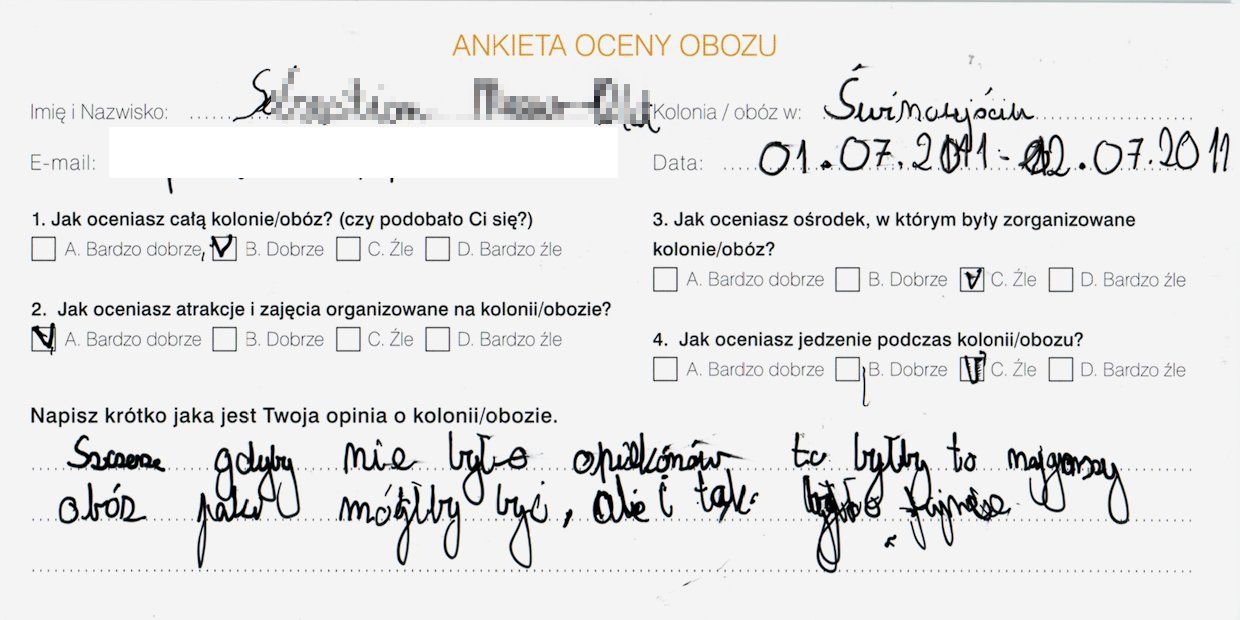 ANKIETA OCENY OBOZU
Imię i Nazwisko:
Kolonia / obóz w: Świnoujściu
E-mail:
Data: 01.07.2011-12.07.2011
1. Jak oceniasz całą kolonie/obóz? (czy podobało Ci się?)
A. Bardzo dobrze B. Dobrze C. Źle D. Bardzo źle
2. Jak oceniasz atrakcje i zajęcia organizowane na kolonii/obozie?
A. Bardzo dobrze B. Dobrze C. Źle D. Bardzo źle
3. Jak oceniasz ośrodek, w którym były zorganizowane
kolonie/obóz?
A. Bardzo dobrze B. Dobrze C. Źle D. Bardzo źle
4. Jak oceniasz jedzenie podczas kolonii/obozu?
A. Bardzo dobrze B. Dobrze C. Źle D. Bardzo źle
Napisz krótko jaka jest Twoja opinia o kolonii/obozie.
gdyby nie było to byłby to najgorszy
obóz jaki mógłby być, ale i tak było fajnie